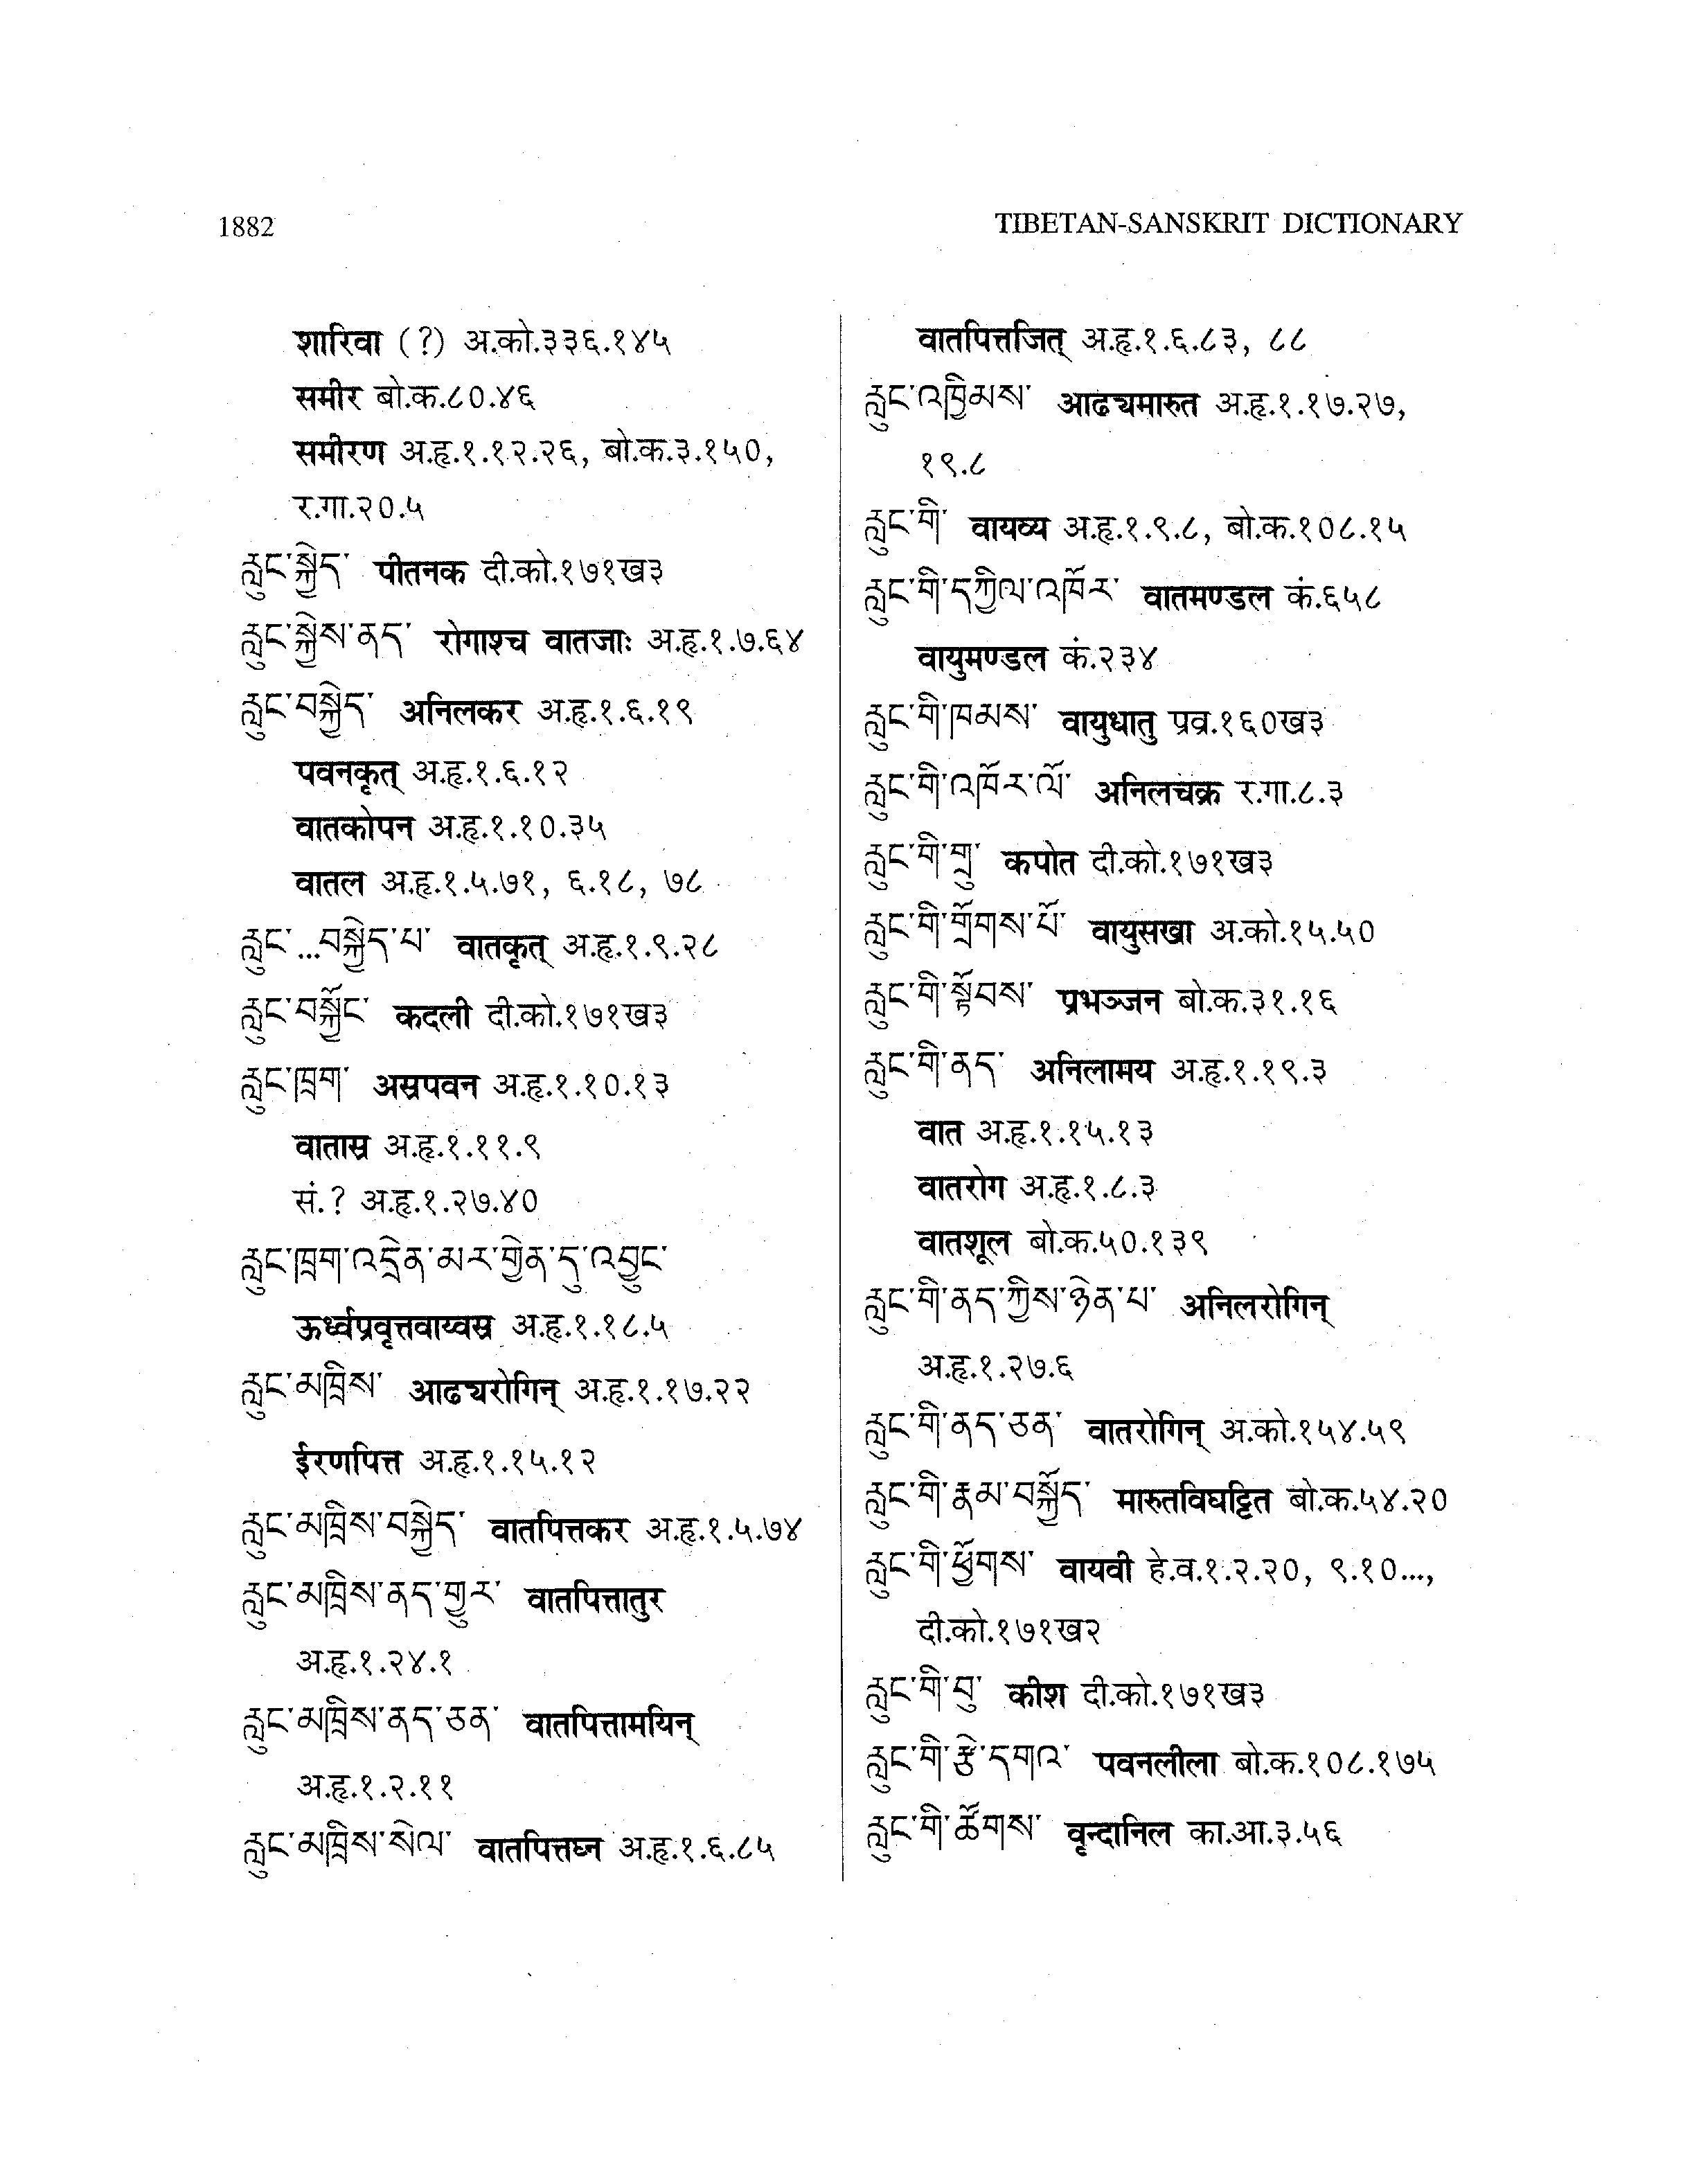 1882
TIBETAN-SANSKRIT DICTIONARY
शारिवा (?) अ.को.३३६.१४५
समीर बो.क.८०.४६
समीरण अ.हृ.१.१२.२६, बो.क.३.१५०,
र.गा.२०.५
རླུང་སྐྱེད་ पीतनक दी.को.१७१ख३
རླུང་སྐྱེས་ནད་ रोगाश्च वातजाः अ.हृ.१.७.६४
རླུང་བསྐྱེད་ अनिलकर अ.हृ.१.६.१९
पवनकृत् अ.हृ.१.६.१२
वातकोपन अ.हृ.१.१०.३५
वातल अ.हृ.१.५.७१, ६.१८, ७८
རླུང་...བསྐྱེད་པ་ वातकृत् अ.हृ.१.९.२८
རླུང་བསྐྱོང་ कदली दी.को.१७१ख३
རླུང་ཁྲག་ अस्रपवन अ.हृ.१.१०.१३
वातास्र अ.हृ.१.११.९
सं.? अ.हृ.१.२७.४०
རླུང་ཁྲག་འདྲེན་མར་གྱེན་དུ་འབྱུང་
ऊर्ध्वप्रवृत्तवाय्वस्र अ.हृ.१.१८.५
རླུང་མཁྲིས་ आढ्यरोगिन् अ.हृ.१.१७.२२
ईरणपित्त अ.हृ.१.१५.१२
རླུང་མཁྲིས་བསྐྱེད་ वातपित्तकर अ.हृ.१.५.७४
རླུང་མཁྲིས་ནད་གྱུར་ वातपित्तातुर
अ.हृ.१.२४.१
རླུང་མཁྲིས་ནད་ཅན་ वातपित्तामयिन्
अ.हृ.१.२.११
རླུང་མཁྲིས་སེལ་ वातपित्तघ्न अ.हृ.१.६.८५
वातपित्तजित् अ.हृ.१.६.८३, ८८
རླུང་འཁྱིམས་ आढ्यमारुत अ.हृ.१.१७.२७,
१९.८
རླུང་གི་ वायव्य अ.हृ.१.९.८, बो.क.१०८.१५
རླུང་གི་དཀྱིལ་འཁོར་ वातमण्डल कं.६५८
वायुमण्डल कं.२३४
རླུང་གི་ཁམས་ वायुधातु प्रव्र.१६०ख३
རླུང་གི་འཁོར་ལོ་ अनिलचक्र र.गा.८.३
རླུང་གི་གྲུ་ कपोत दी.को.१७१ख३
རླུང་གི་གྲོགས་པོ་ वायुसखा अ.को.१५.५०
རླུང་གི་སྟོབས་ प्रभञ्जन बो.क.३१.१६
རླུང་གི་ནད་ अनिलामय अ.हृ.१.१९.३
वात अ.हृ.१.१५.१३
वातरोग अ.हृ.१.८.३
वातशूल बो.क.५०.१३९
རླུང་གི་ནད་ཀྱིས་ཉེན་པ་ अनिलरोगिन्
अ.हृ.१.२७.६
རླུང་གི་ནད་ཅན་ वातरोगिन् अ.को.१५४.५९
རླུང་གི་རྣམ་བསྐྱོད་ मारुतविघट्टित बो.क.५४.२०
རླུང་གི་ཕྱོགས་ वायवी हे.व.१.२.२०, ९.१०...,
दी.को.१७१ख२
རླུང་གི་བུ་ कीश दी.को.१७१ख३
རླུང་གི་རྩེ་དགའ་ पवनलीला बो.क.१०८.१७५
རླུང་གི་ཚོགས་ वृन्दानिल का.आ.३.५६